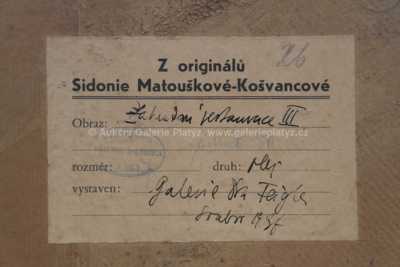 26
Z originálů
Sidonie Matouškové-Košvancové
Obraz: Zahradní restaurace III
© Aukční Galerie Platýz, www.galerieplatyz.cz
rozměr: druh: olej
vystaven: Galerie Dra Feigla